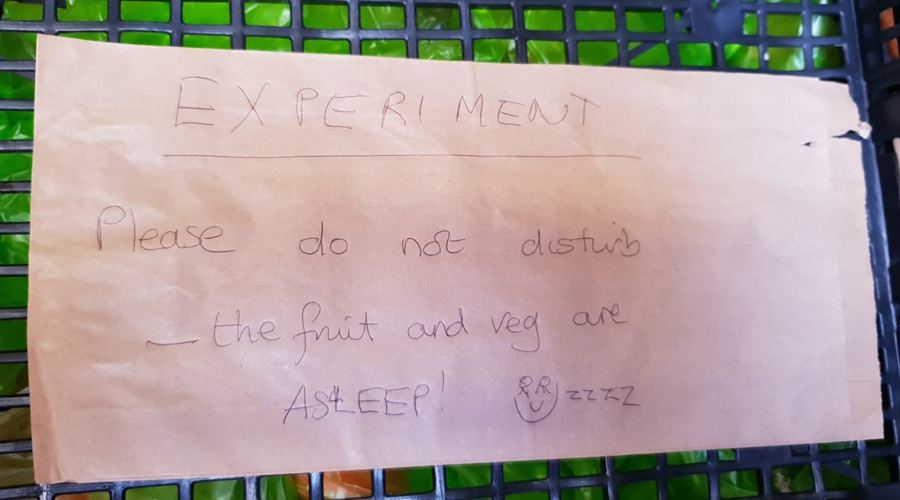 EXPERIMENT
Please do not disturb
– the fruit and veg are
ASLEEP! zzzz